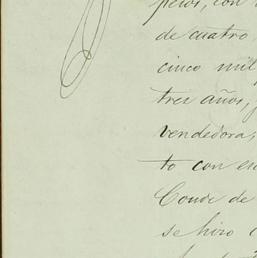 pesos, con
de cuatro
cinco mil
tres años,
vendedora,
to con es
Conde de
se hizo